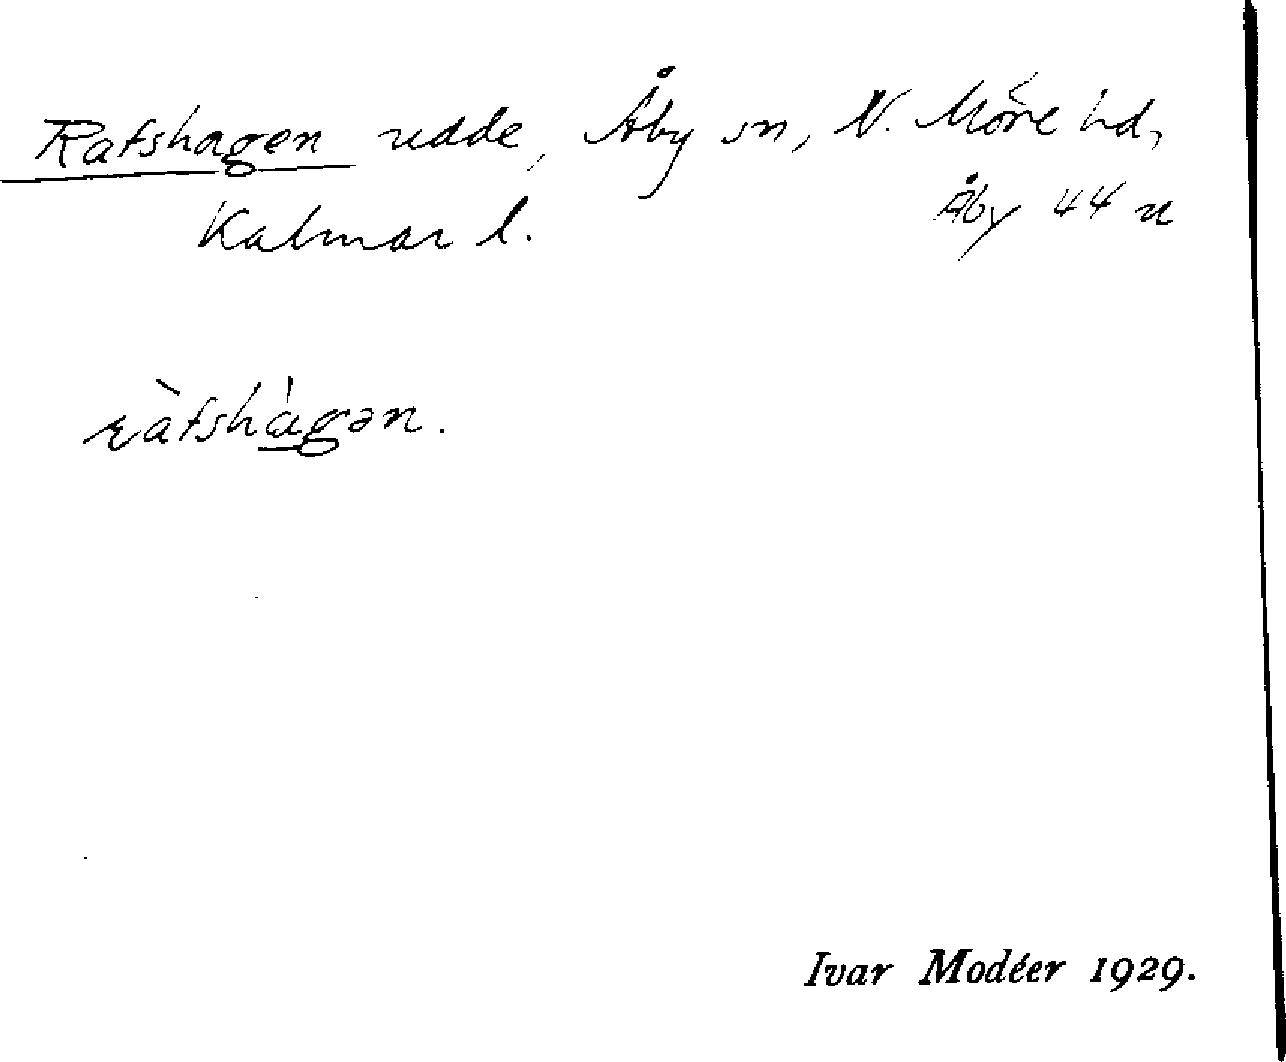 Rafshagen udde, Åby sn, N. Möre hd,
Kalmar l.
Åby 44 u
ràfshágən.
Ivar Modéer 1929.